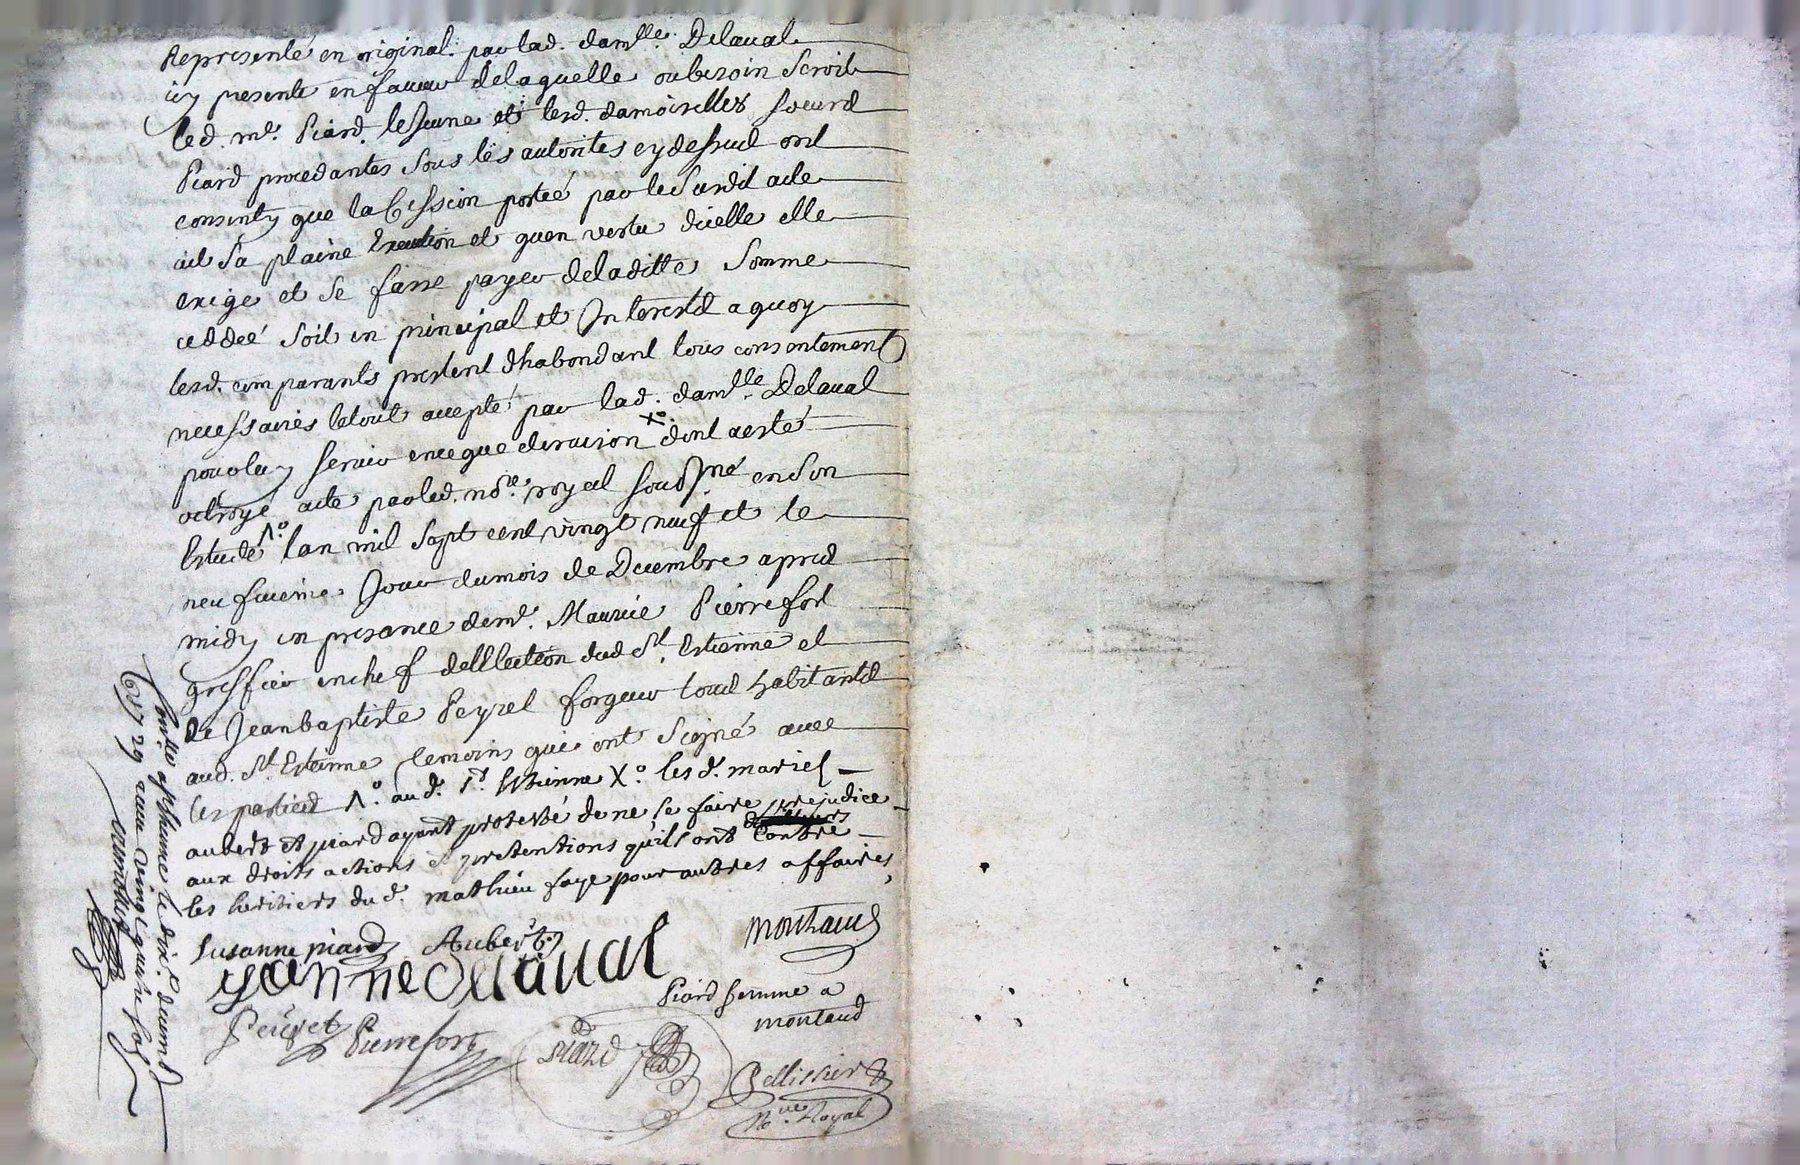 Representé en original par lad. damlle. Delaual
icy presente en faueur delaquelle oubezoin Seroit
led. mr. Piard. leJeune et lesd. damoiselles Soeurs
Piard procedantes Sous les autorites cydessus ont
consenty que la Cession portée par leSusdit acte
ait Sa plaine Execution et quen vertu dicelle elle
exige et se fasse payer deladitte Somme
ceddeé Soit en principal et Interestd aquoy
lesd. comparants prestent dhabondant tous consentement
necessaires letout accepté par lad. damlle. Delaual
pourluy seruir enceque deraison Xo dont aesté
octroyé acte parled. nore. royal sousne en Son
Estude 1o. lan mil Sept cent vingt neuf et le
neufuieme Jour dumois de Decembre apres
midy en presance demr. Maurice Pierrefort
greffier enchef dellEletion dud St. Estienne et
de Jeanbaptiste Peyret forgeur tous habitants
aud. St. Estienne temoins qui ont Signé auec
les parties 1o. au d. St. Estienne Xo. les d. mariés
aubert et piard ayant protesté de ne se faire prejudice
aux droits actions et pretentions qu'ils ont Contre
les heritiers du d. mathieu faye pour autres affaires,
Susanne piard Aubert
montaud
jeanne Delaual
Piard femme a
montaud
Peyret Pierrefort
piard
Pellissier
Nre. Royal
le dixe. decemb
1729